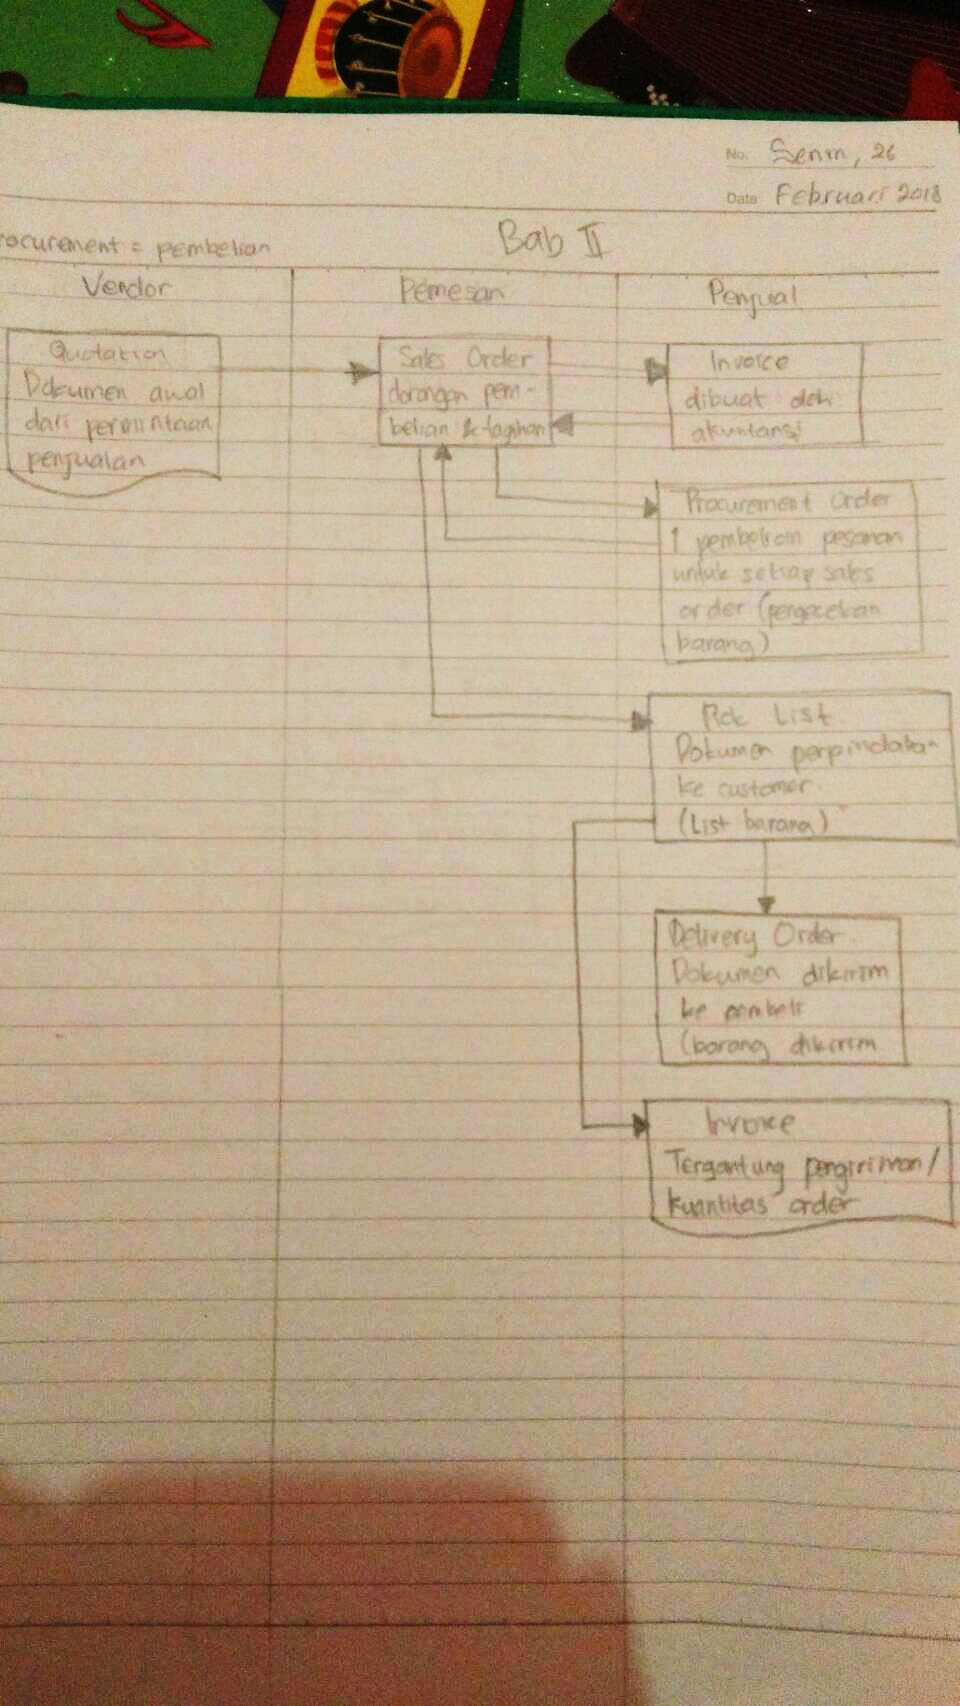 No. Senin, 26
Date Februari 2018
rocurement = pembelian
Bab II
Vendor
Pemesan
Penjual
Quotation
Dokumen awal
dari permintaan
penjualan
Sales Order
dorongan pem-
belian & tagihan
Invoice
dibuat oleh
akuntansi
Procurement Order
1 pembelian pesanan
untuk setiap sales
order (pengecekan
barang)
Pick List
Dokumen perpindahan
ke customer.
(List barang)
Delivery Order.
Dokumen dikirim
ke pembeli
(barang dikirim
Invoice
Tergantung pengiriman/
kuantitas order